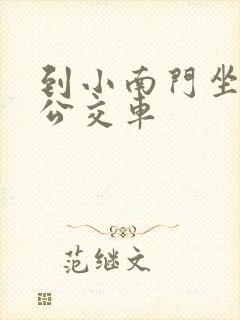 到小南門坐
公交車
范继文